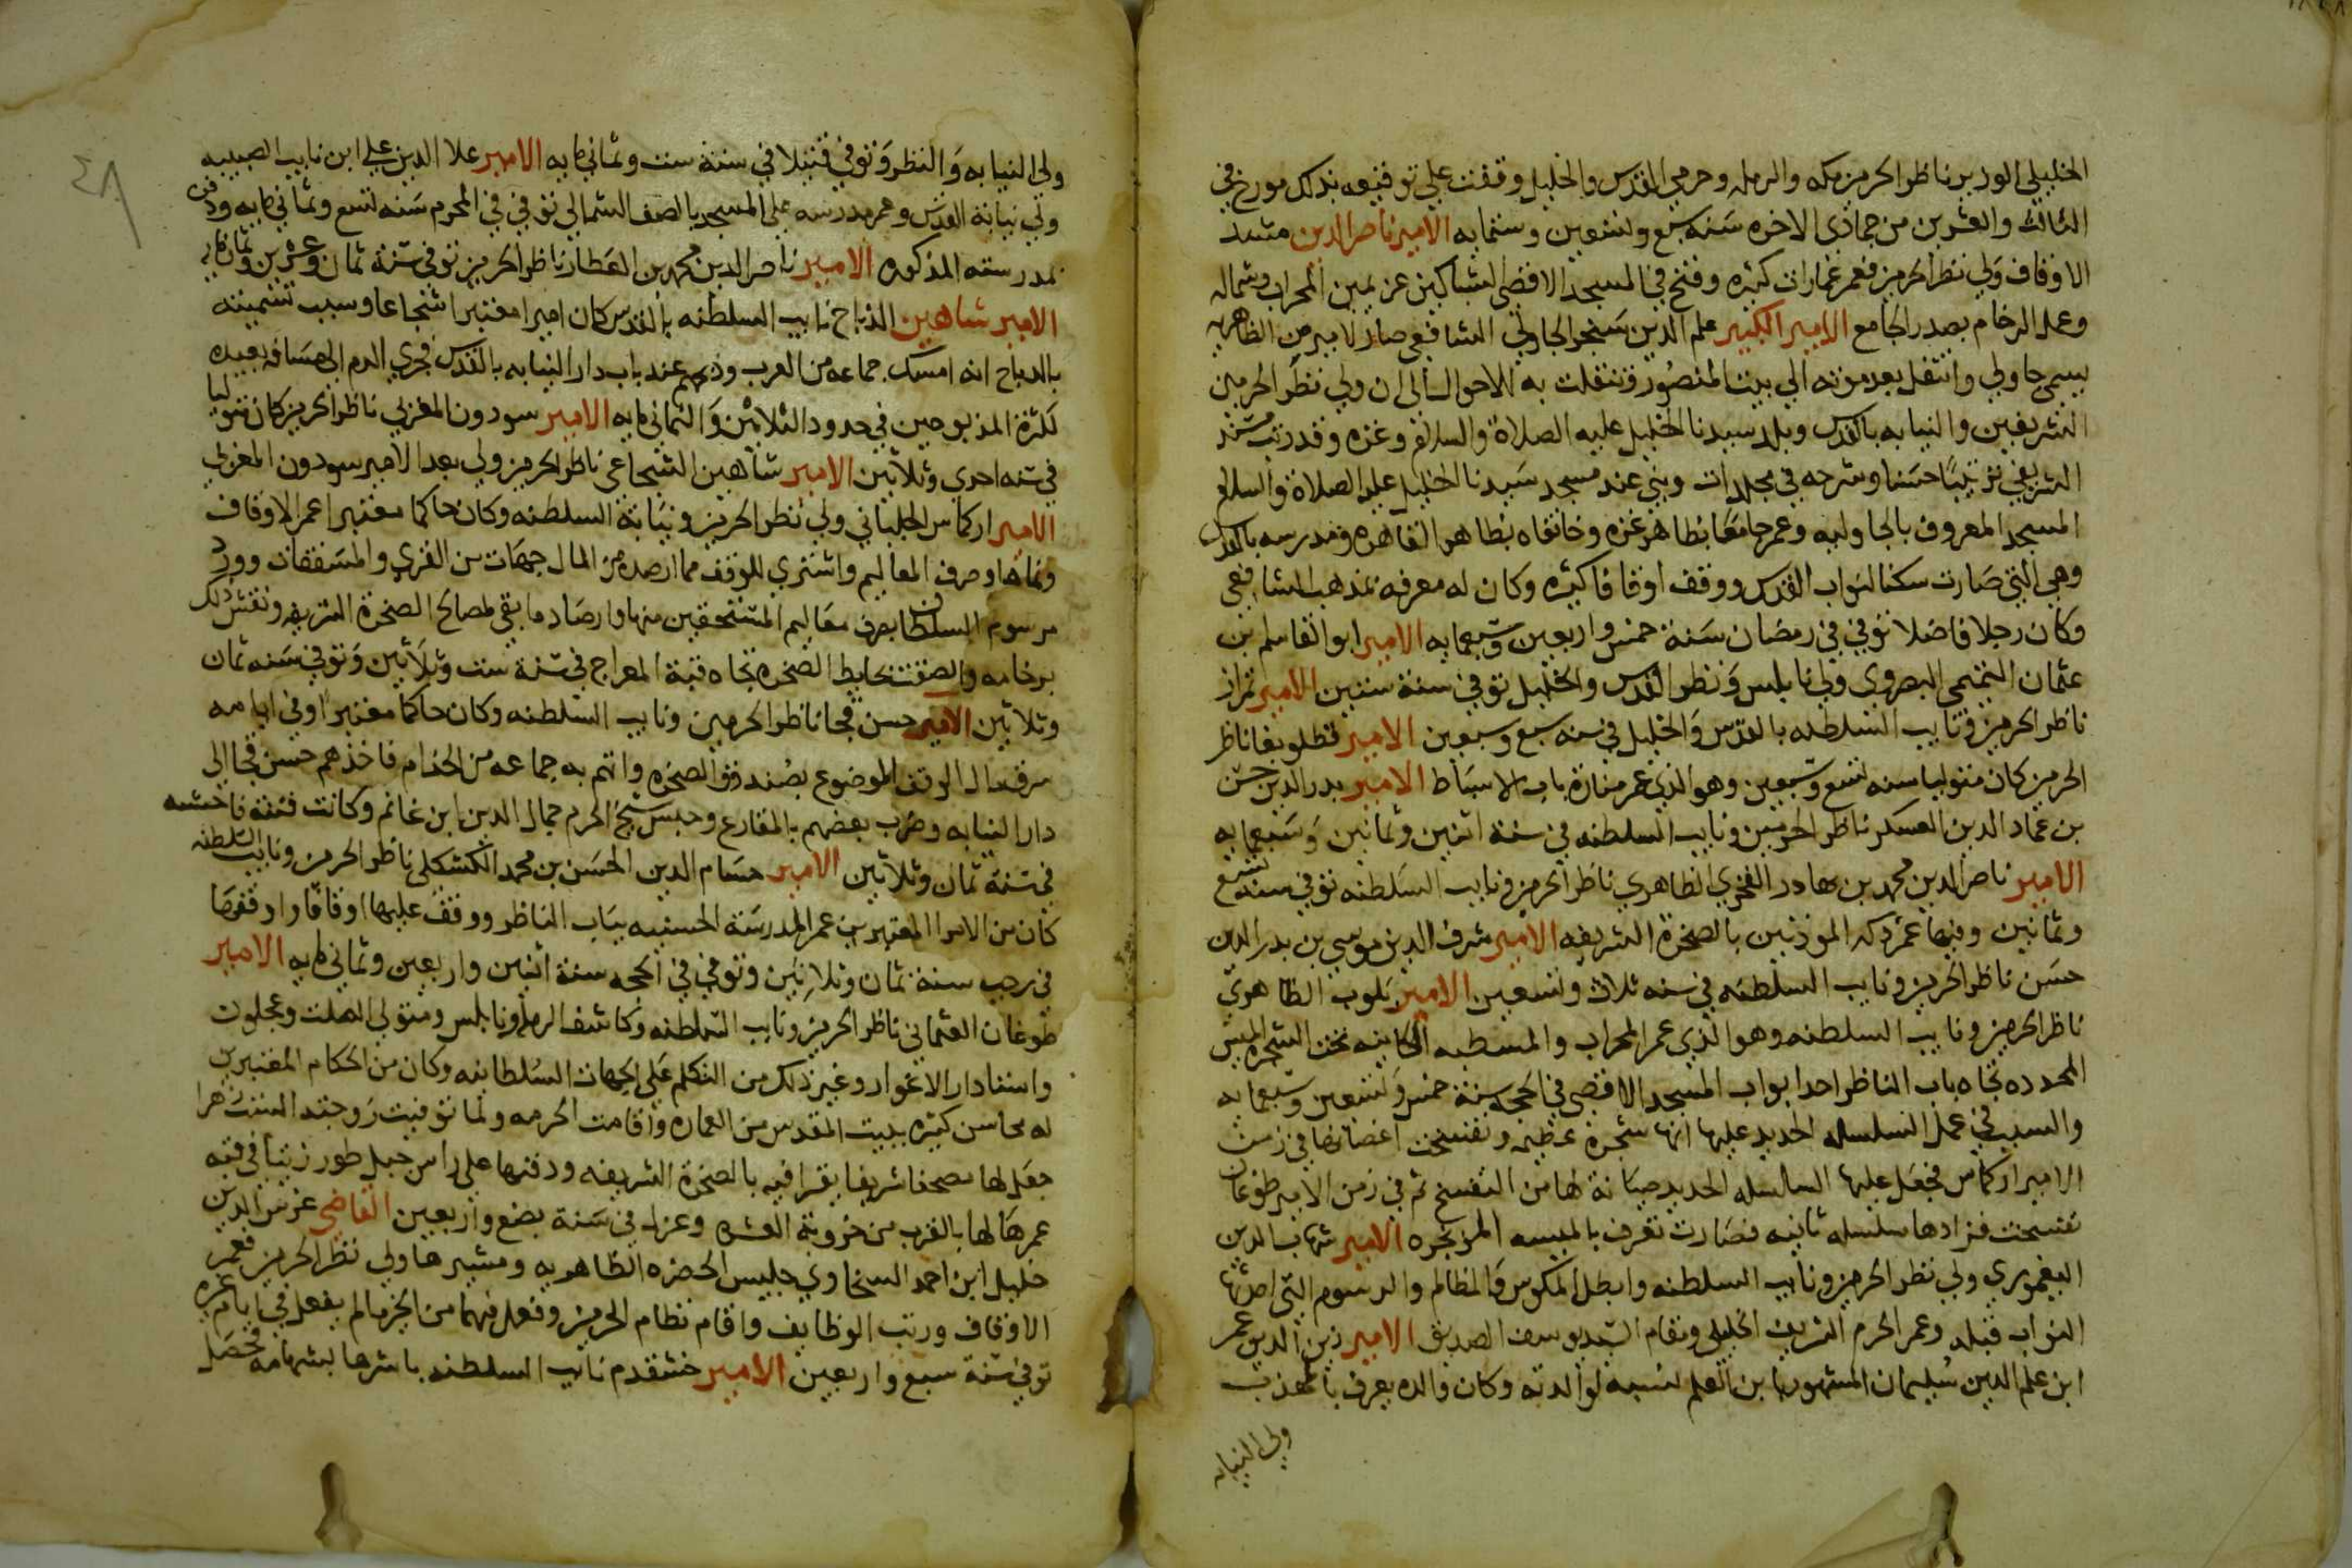 الخليلي الوزير ناظر الحرمين مكه والرمله وحرمي القدس والخليل وقفت على توقيعه بذلك مورخ في
الثالث والعشرين من جمادى الاخره سنه سبع وتسعين وستمايه الامير ناصر الدين مشد
الاوقاف ولي نظر الحرمين فعمر عمارات كثيره وفتح في المسجد الاقصى الشباكين عن يمين المحراب وشماله
وعمل الرخام بصدر الجامع الامير الكبير علم الدين سنجر الجاولي الشافعي صار لامير من الظاهريه
يسمى جاولي وانتقل بعد موته الى بيت المنصور وتنقلت به الاحوال الى ان ولي نظر الحرمين
الشريفين والنيابه بالقدس وبلد سيدنا الخليل عليه الصلاة والسلام وغزه وقد رتب مسند
الشافعي ترتيبا حسنا وشرحه في مجلدات وبنى عند مسجد سيدنا الخليل عليه الصلاة والسلام
المسجد المعروف بالجاوليه وعمر جامعا بظاهر غزه وخانقاه بظاهر القاهره ومدرسه بالقدس
وهي التي صارت سكنا لنواب القدس ووقف اوقافا كثيره وكان له معرفه بمذهب الشافعي
وكان رجلا فاضلا توفي في رمضان سنة خمس واربعين وسبعمايه الامير ابو القاسم بن
عثمان التميمي البصروي ولي نابلس ونظر القدس والخليل توفي سنة ستين الامير تمراز
ناظر الحرمين ونايب السلطنه بالقدس والخليل في سنه سبع وسبعين الامير قطلوبغا ناظر
الحرمين كان متوليا سنه تسع وسبعين وهو الذي عمر منارة باب الاسباط الامير بدر الدين حسن
بن عماد الدين العسكر ناظر الحرمين ونايب السلطنه في سنة اثنين وثمانين وسبعمايه
الامير ناصر الدين محمد بن بهادر الفخري الظاهري ناظر الحرمين ونايب السلطنه توفي سنة تسع
وثمانين وفيها عمر دكه الموذنين بالصخرة الشريفه الامير شرف الدين موسي بن بدر الدين
حسن ناظر الحرمين ونايب السلطنه في سنه ثلاث وتسعين الامير بلوب الظاهري
ناظر الحرمين ونايب السلطنه وهو الذي عمر المحراب والمسطبه الكاينه تحت الشجره الميس
المحدده تجاه باب الناظر احد ابواب المسجد الاقصى في الحجه سنة خمس وتسعين وسبعمايه
والسبب في عمل السلسله الحديد عليها انها شجرة عظيمه وتفسخت اغصانها في زمن
الامير اركماس فجعل عليها السلسله الحديد صيانة لها من التفسخ ثم في زمن الامير طوغان
تفسخت فزادها سلسله ثانيه فصارت تعرف بالميسه المزنجره الامير شهاب الدين
اليغموري ولي نظر الحرمين ونايب السلطنه وابطل المكوس والمظالم والرسوم التي احدثها
النواب قبله وعمر الحرم الشريف الخليلي ومقام السيد يوسف الصديق الامير زين الدين عمر
ابن علم الدين سليمان المشهور بابن العلم لنسبه لوالدته وكان والده يعرف بالمهذب
ولى النيابه
ولى النيابه والنظر وتوفي قتيلا في سنة ست وثماني مايه الامير علا الدين علي ابن نايب الصبيبه
ولي نيابة القدس وعمر مدرسه على المسجد بالصف الشمالي توفي في المحرم سنه تسع وثماني مايه ودفن
بمدرسته المذكوره الامير ناصر الدين محمد بن العطار ناظر الحرمين توفي سنة ثمان وعشرين وثمان مايه
الامير شاهين الذباح نايب السلطنه بالقدس كان اميرا معتبرا شجاعا وسبب تسميته
بالذباح انه امسك جماعه من العرب وذبحهم عند باب دار النيابه بالقدس فجري الدم الى مسافه بعيده
لكثرة المذبوحين في حدود الثلاثين والثماني مايه الامير سودون المغربي ناظر الحرمين كان متوليا
في سنه احدي وثلاثين الامير شاهين الشجاعي ناظر الحرمين ولي بعد الامير سودون المغربي
الامير اركماس الجلباني ولي نظر الحرمين ونيابة السلطنه وكان حاكما معتبرا عمر الاوقاف
ونماها وصرف المعاليم واشتري للوقف مما ارصده من المال جهات من القري والمسقفات وورد
مرسوم السلطان بصرف معاليم المستحقين منها وارصاد ما بقي لمصالح الصخرة الشريفه ونقش ذلك
برخامه والصقت بحايط الصخره تجاه قبة المعراج في سنة ست وثلاثين وتوفي سنه ثمان
وثلاثين الامير حسن قجا ناظر الحرمين ونايب السلطنه وكان حاكما معتبرا وفي ايامه
سرق مال الوقف الموضوع بصندوق الصخره واتهم به جماعه من الخدام فاخذهم حسن قجا الى
دار النيابه وضرب بعضهم بالمقارع وحبس شيخ الحرم جمال الدين ابن غانم وكانت فتنة فاحشه
في سنة ثمان وثلاثين الامير حسام الدين الحسن بن محمد الكشكلي ناظر الحرمين ونايب السلطنه
كان من الامرا المعتبرين عمر المدرسة الحسنيه بباب الناظر ووقف عليها اوقافا واوقفها
في رجب سنة ثمان وثلاثين وتوفي في الحجه سنة اثنين واربعين وثماني مايه الامير
طوغان العثماني ناظر الحرمين ونايب السلطنه وكاشف الرمله ونابلس ومتولى الصلت وعجلون
واستادار الاغوار وغير ذلك من التكلم على الجهات السلطانيه وكان من الحكام المعتبرين
له محاسن كثيره ببيت المقدس من العماره واقامت الحرمه ولما توفيت زوجته الست زهرا
جعل لها مصحفا شريفا يقرا فيه بالصخرة الشريفه ودفنها على راس جبل طور زيتا في قبه
عمرها لها بالقرب من خروبة العشره وعزل في سنة بضع واربعين القاضي غرس الدين
خليل ابن احمد السخاوي جليس الحضره الظاهريه ومشيرها ولي نظر الحرمين فعمر
الاوقاف ورتب الوظايف واقام نظام الحرمين وفعل فيهما من الخير مالم يفعل في ايام غيره
توفي سنة سبع واربعين الامير خشقدم نايب السلطنه باشرها بشهامه فحصل